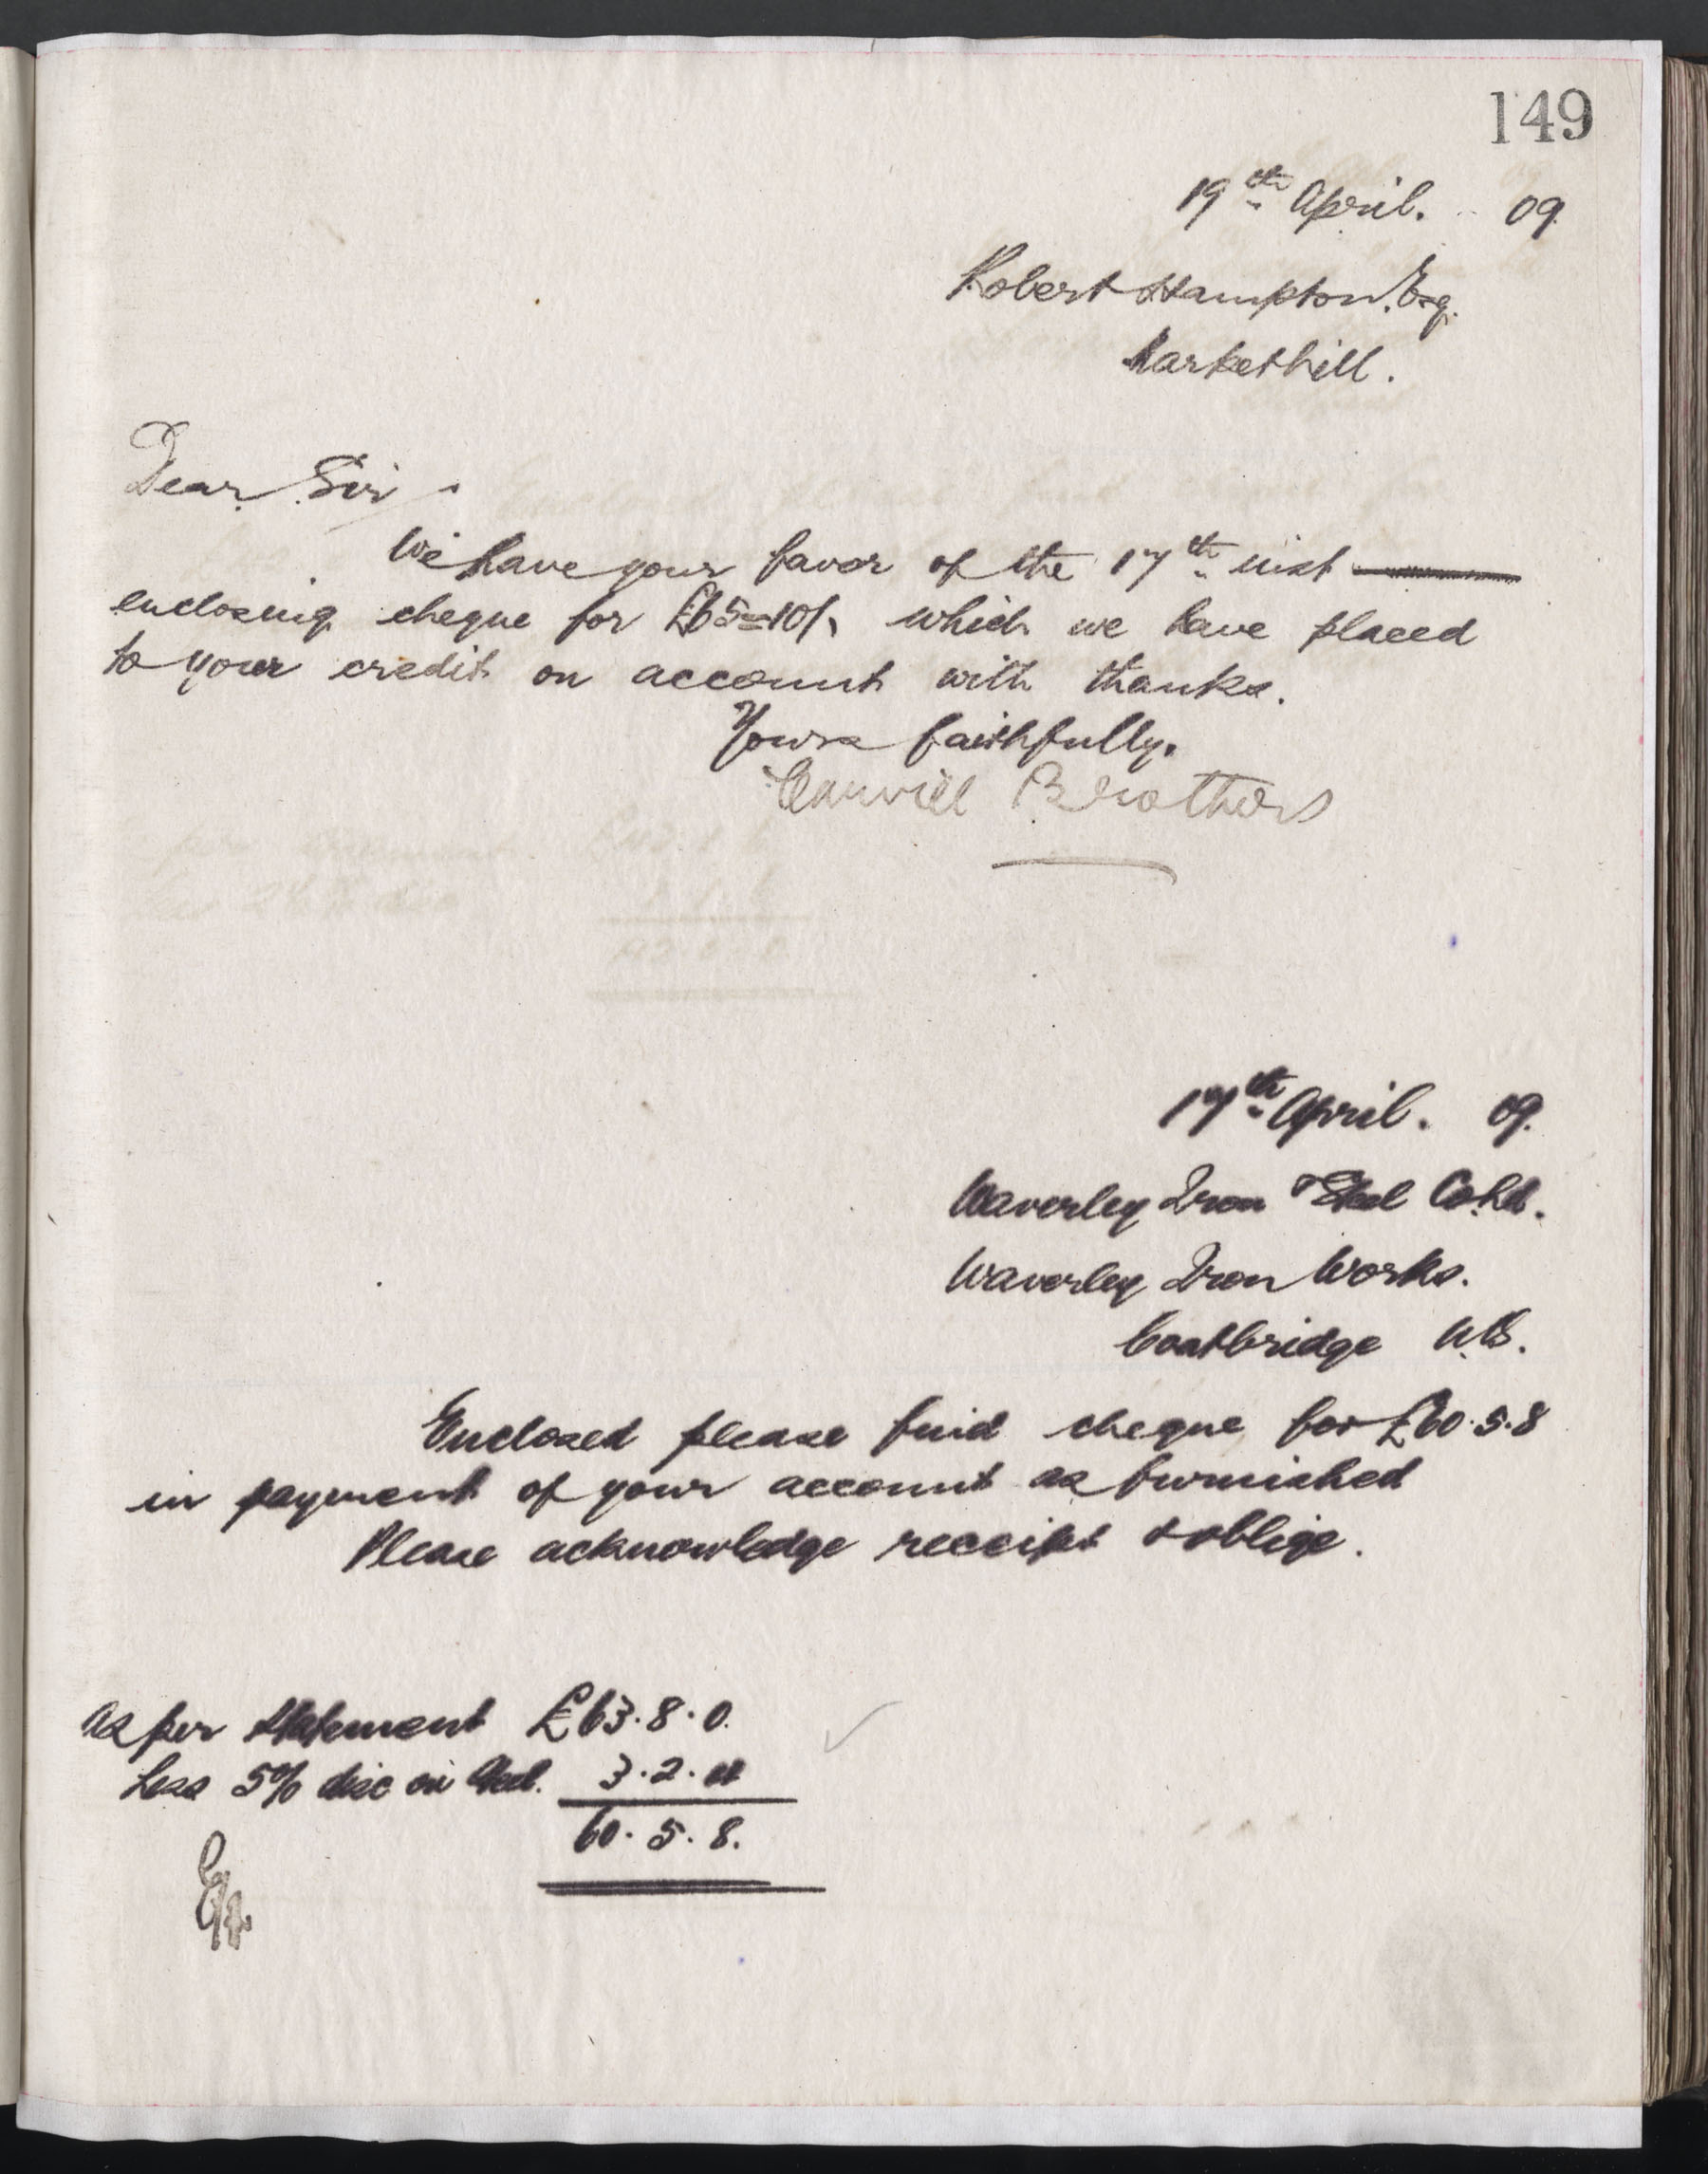 149
19th April. 09.
Robert Hampton. Esq.
Markethill.
Dear Sir,
We have your favor of the 17th inst
enclosing cheque for £65=10/- which we have placed
to your credit on account with thanks.
Yours faithfully.
Carvill Brothers
17th April. 09.
Waverley Iron & Steel Co. Ld.
Waverley Iron Works.
Coatbridge N.B.
Enclosed please find cheque for £60.5.8
in payment of your account as furnished
Please acknowledge receipt & oblige.
As per statement £63.8.0.
Less 5% disc on Steel. 3.2.4
60.5.8.